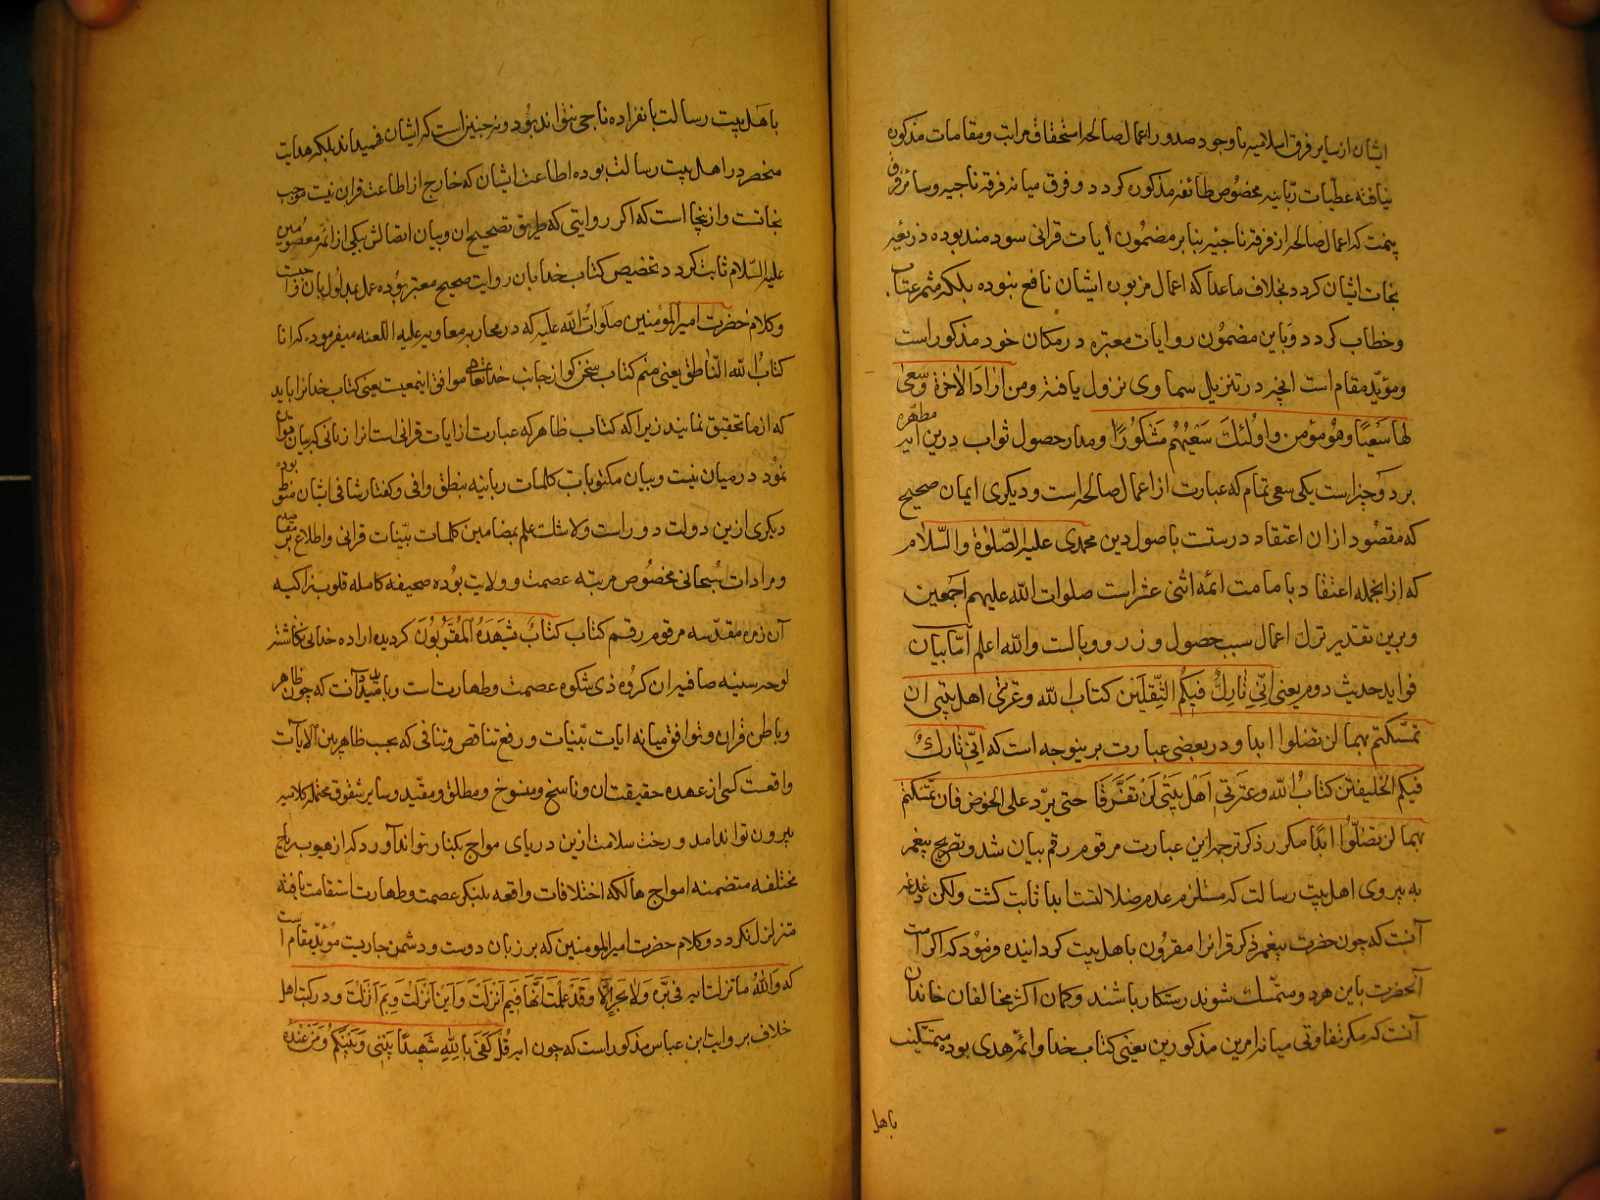 ایشان از سایر فرق اسلامیه با وجود صدور اعمال صالحه استحقاق مراتب و مقامات مذکوره
نیافته عطیات ربانیه مخصوص طائفه مذکوره کردد و فرق میانه فرقه ناجیه و سائر فرق
اعمال صالحه از فرقه ناجیه بنابر مضمون آیات قرانی سودمند بوده ذریعه
نجات ایشان کردد بخلاف ماعدا که اعمال مزبوره ایشان نافع نبوده بلکه مثمر عتاب
و خطاب کردد و باین مضمون روایات معتبره در مکان خود مذکور است
و مؤید مقام است انچه در تنزیل سماوی نزول یافته و من اراد الاخرة و سعی
لها سعیها و هو مؤمن و اولئک سعیهم مشکورا و مدار حصول ثواب درین ایه مطهره
بر دو چیز است یکی سعی تمام که عبارت از اعمال صالحه است و دیکری ایمان صحیح
که مقصود ازان اعتقاد درست باصول دین محمدی علیه الصلوة و السلام
که از انجمله اعتقاد بامامت ائمه اثنی عشر است صلوات الله علیهم اجمعین
و برین تقدیر ترک اعمال سبب حصول وزر و وبالست والله اعلم اما بیان
فواید حدیث دوم یعنی انی تارک فیکم الثقلین کتاب الله و عترتی اهل بیتی ان
تمسکتم بهما لن تضلوا ابدا و در بعضی عبارت برینوجه است که انی تارک
فیکم الخلیفتین کتاب الله و عترتی اهل بیتی لن تفرقا حتی یرد علی الحوض فان تمسکتم
بهما لن تضلوا ابدا مکرر ذکر ترجمه این عبارت مرقوم رقم بیان شد و تصریح پیغمبر
به پیروی اهل بیت رسالت که مستلزم عدم ضلالتست ابدا ثابت کشت ولکن دغدغه
آنست که چون حضرت پیغمبر ذکر قرانرا مقرون باهل بیت کردانیده و فرمود که اکر امت
آنحضرت باین هردو متمسک شوند رستکار باشند و کمان اکثر مخالفان خاندان
آنست که مکر تفاوتی میانه امرین مذکورین یعنی کتاب خدا و ائمه هدی بوده متمسکین
باهل
باهل بیت رسالت بانفراده ناجی نتواند بود و نه چنین است که ایشان فهمیده اند بلکه هدایت
منحصر در اهل بیت رسالت بوده اطاعت ایشان که خارج از اطاعت قران نیست موجب
نجاتست و ازینجا است که اکر روایتی که طریق تصحیح ان و بیان اتصالش بیکی از ائمه معصومین
علیه السلام ثابت کردد تخصیص کتاب خدا بان روایت صحیح معتبر بوده عمل بمدلول بان
و کلام حضرت امیر المؤمنین صلوات الله علیه که در محاربه معاویه علیه اللعنه میفرموده که انا
کتاب الله الناطق یعنی منم کتاب سخن کو از جانب خدایتعالی موافق اینمعنیست یعنی کتاب خدا را باید
که از ما تحقیق نمایند زیرا که کتاب ظاهر که عبارت از ایات قرانی است انرا زبانی که بیان توان
نمود در میان نیست و بیان مکتوبات کلمات ربانیه بنطق وافی و کفتار شافی ایشان منوط بود
دیکری ازین دولت دور است و لاشک علم بمضامین کلمات بینات قرانی و اطلاع بر مقاصد
و مرادات سبحانی مخصوص مرتبه عصمت و ولایت بوده صحیفه کامله قلوب زاکیه
آن زمره مقدسه مرقوم رقم کتاب کتاب شهده المقربون کردیده اراده خدایی نکاشته
لوحه سینه صافیران کروه ذی شکوه عصمت و طهارت است و آنست که چون ظاهر
و باطن قران و توافق میانه ایات بینات و رفع تناقض و تنافی که بحسب ظاهر بین الایات
واقعست کسی از عهده حقیقت ان و ناسخ و منسوخ و مطلق و مقید و سایر شقوق محتمله کلامیه
بیرون تواند امد و رخت سلامت ازین دریای مواج بکنار تواند آورد که از هبوب ریاح
مختلفه متضمنه امواج هالکه اختلافات واقعه بلنکر عصمت و طهارت استقامت یافته
متزلزل نکردد و کلام حضرت امیر المومنین که بر زبان دوست و دشمن جاریست مؤید مقام است
که والله ما نزلت ایه فی بره ولا بحر الا و قد علمت انها فیم انزلت و این انزلت و بم انزلت و در کتب اهل
خلاف بروایت ابن عباس مذکور است که چون ایه قل کفی بالله شهیدا بینی و بینکم و من عنده